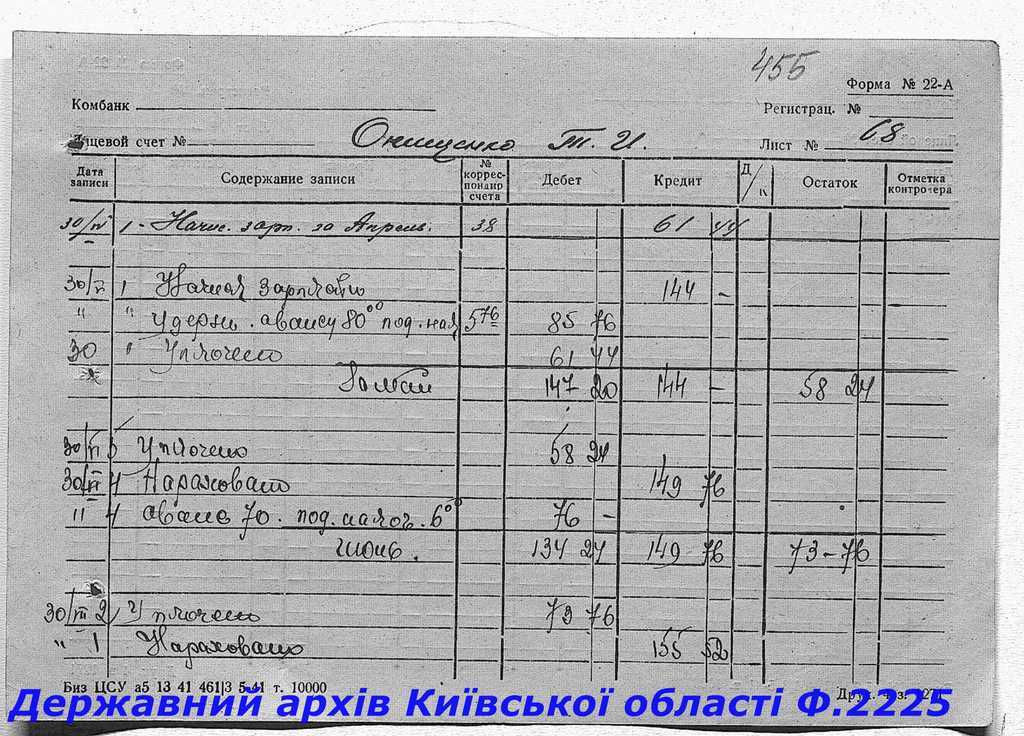 455
Форма № 22-А
Комбанк
Регистрац. №
Лицевой счет № Онищенко Т. И. Лист № 68
Дата записи Содержание записи № коррес- пондир счета Дебет Кредит Д/К Остаток Отметка контролера
30/IV 1 - Начис. зарп. за Апрель. 38 61 44
30/V 1 Начисл Зарплати 144 -
" " Удержи. авансу 80 под. нал 5 76 85 76
30 " Уплочено 61 44
147 20 144 - 58 24
30/VI 5 Уплочено 58 24
30/VI 4 Нараховано 149 76
" 4 аванс 70. под. налог. 6 76 -
июнь. 134 24 149 76 73-76
30/VII 2 Уплочено 73 76
" 1 Нараховано 155 52
Биз ЦСУ а5 13 41 461|3 5.41 т. 10000
Державний архів Київської області Ф.2225